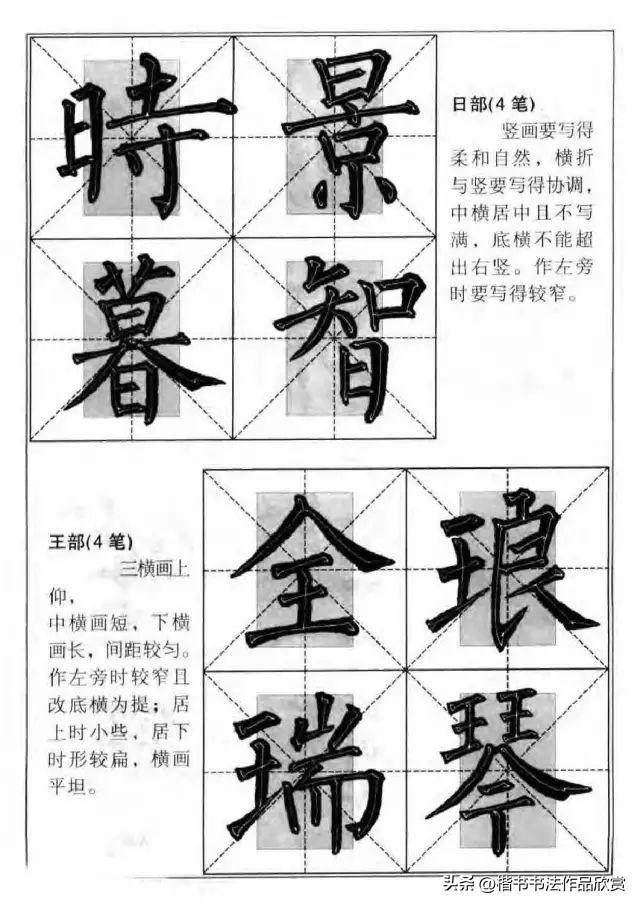 時景
日部(4笔)
竖画要写得
柔和自然，横折
与竖要写得协调，
中横居中且不写
满，底横不能超
出右竖。作左旁
时要写得较窄。
暮智
王部(4笔)
三横画上
仰，
中横画短，下横
画长，间距较匀。
作左旁时较窄且
改底横为提；居
上时小些，居下
时形较扁，横画
平坦。
全琅
瑞琴
头条 @楷书书法作品欣赏